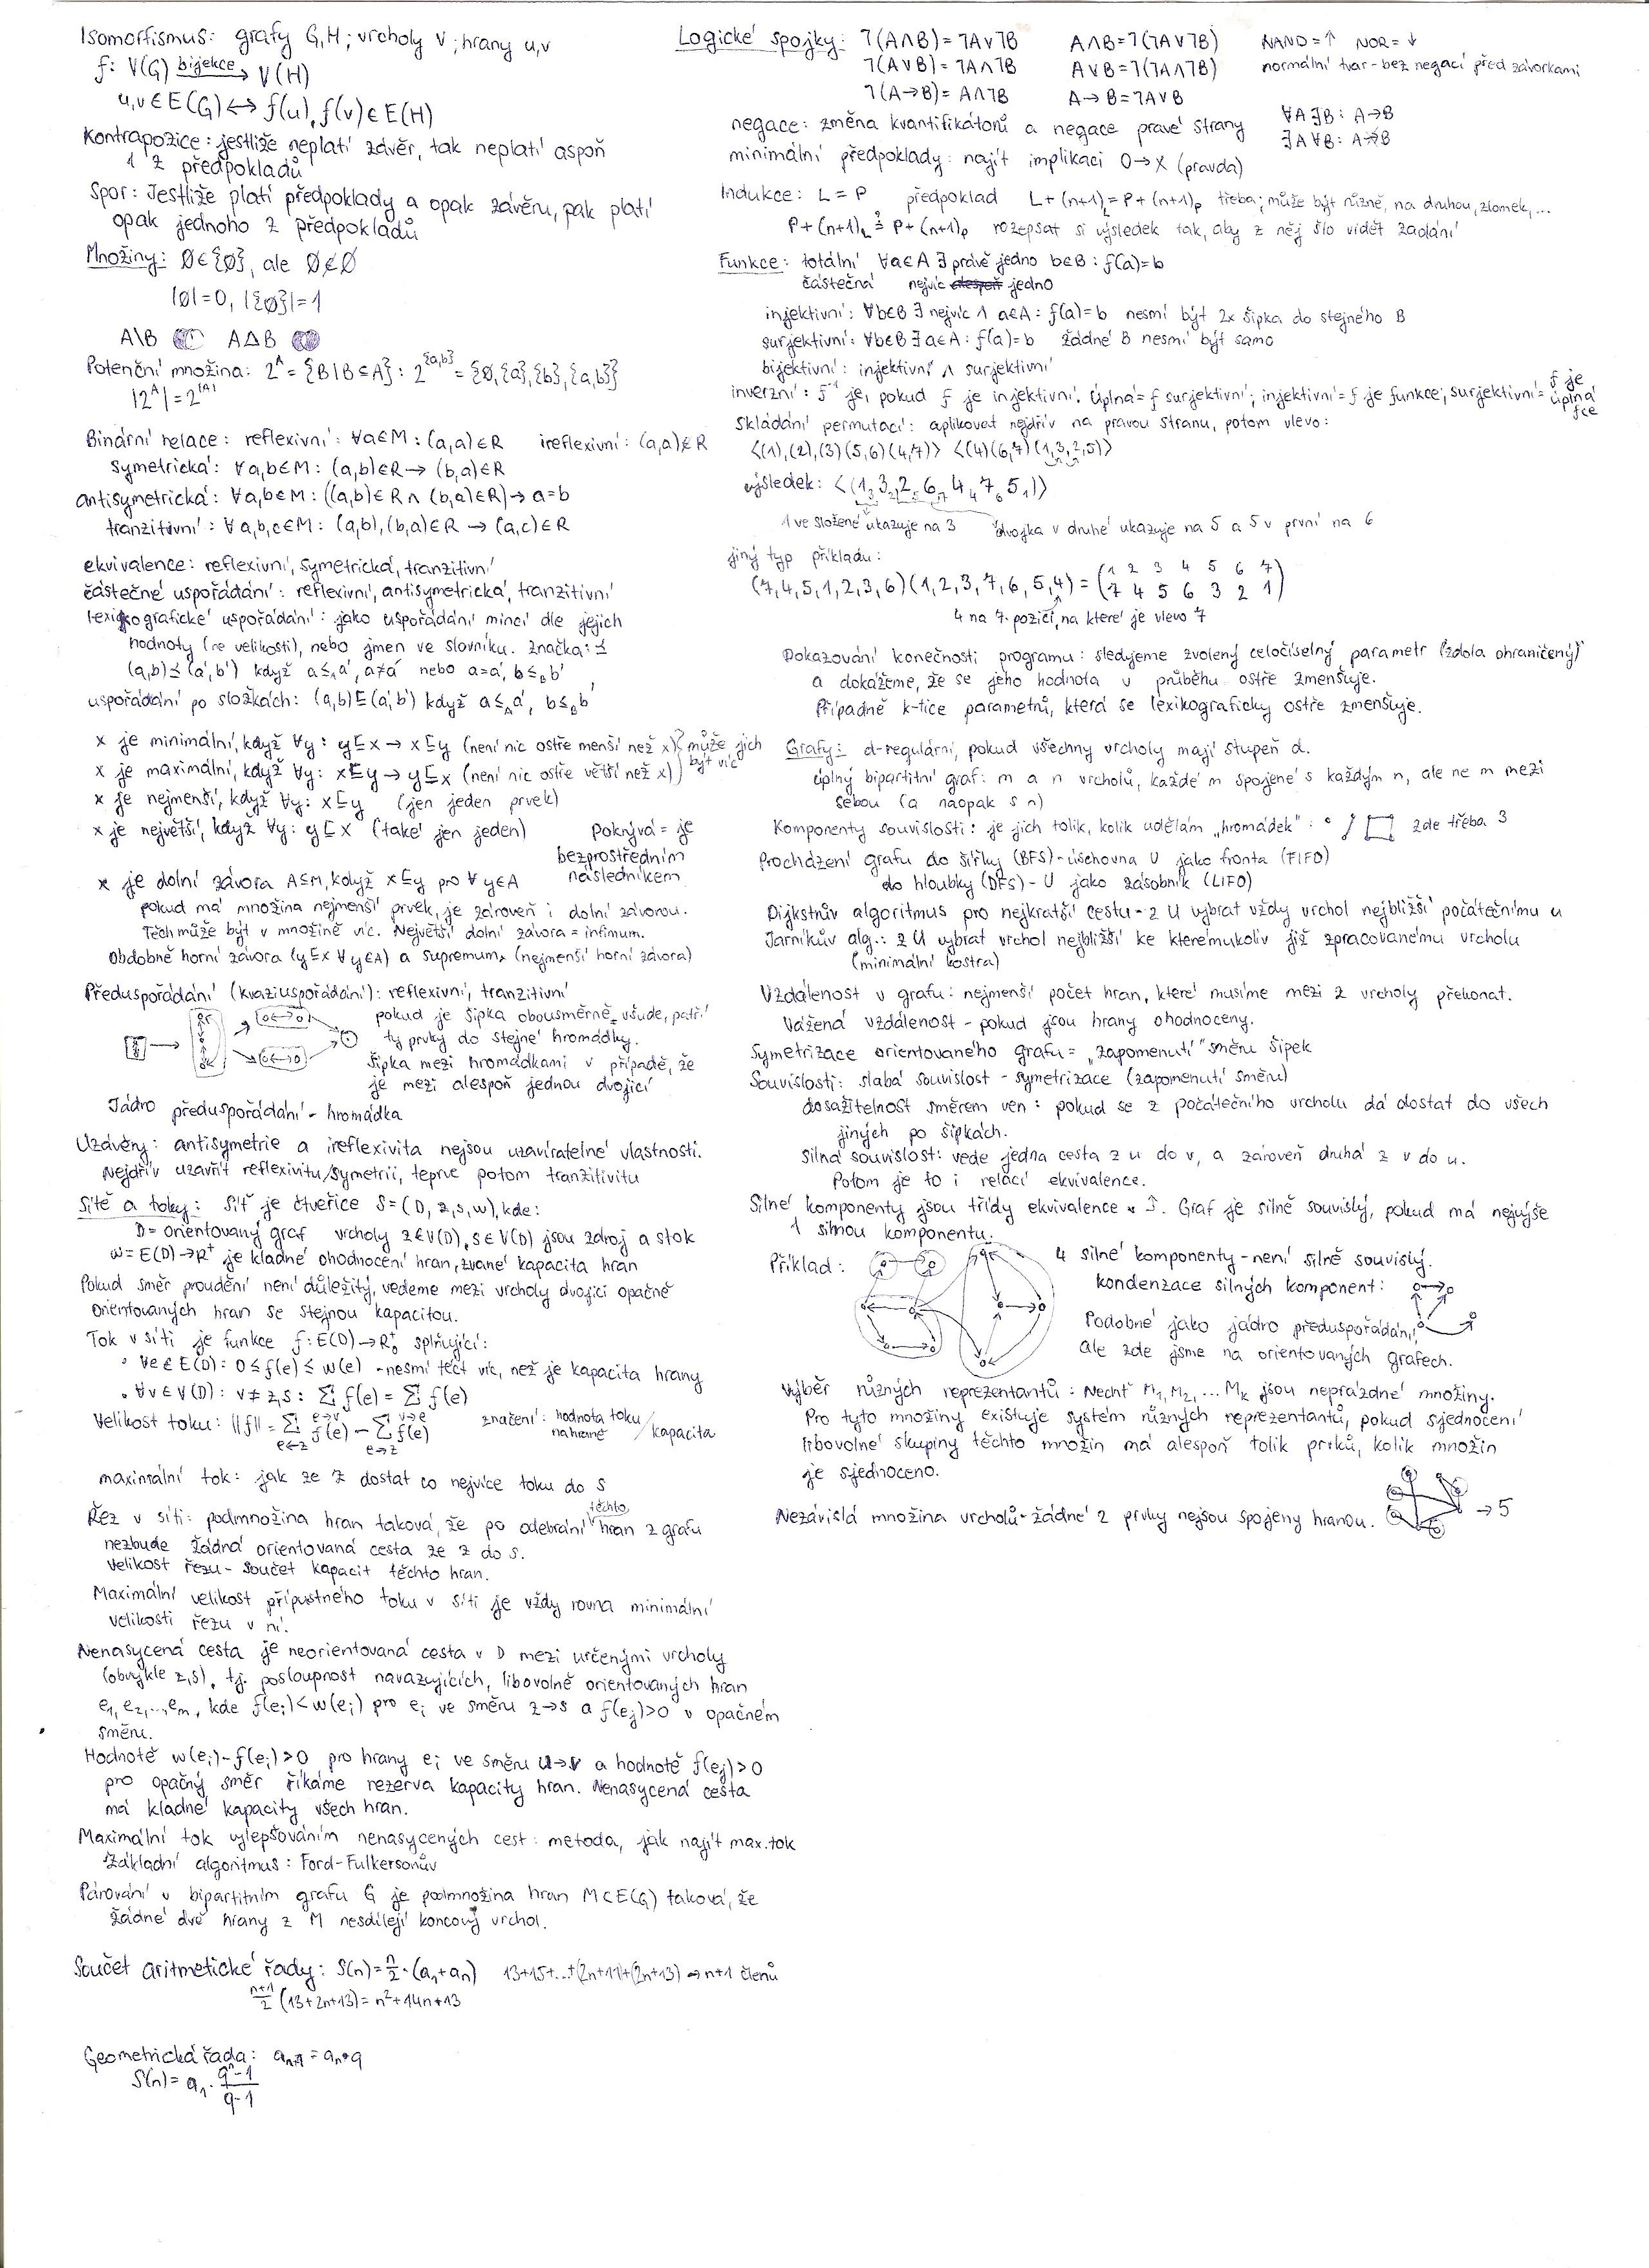 Isomorfismus: grafy G,H; vrcholy V; hrany u,v
f: V(G) bijekce→ V(H)
u,v∈E(G)↔f(u),f(v)∈E(H)
Kontrapozice: jestliže neplatí závěr, tak neplatí aspoň
1 z předpokladů
Spor: Jestliže platí předpoklady a opak závěru, pak platí
opak jednoho z předpokladů
Množiny: ∅∈{∅}, ale ∅∉∅
|∅|=0, |{∅}|=1
A\B A△B
Potenční množina: 2^A={B|B⊆A}: 2^{a,b}={∅,{a},{b},{a,b}}
|2^A|=2^|A|
Binární relace: reflexivní: ∀a∈M: (a,a)∈R ireflexivní: (a,a)∉R
symetrická: ∀a,b∈M: (a,b)∈R→(b,a)∈R
antisymetrická: ∀a,b∈M: ((a,b)∈R∧(b,a)∈R)→a=b
tranzitivní: ∀a,b,c∈M: (a,b),(b,a)∈R→(a,c)∈R
ekvivalence: reflexivní, symetrická, tranzitivní
částečné uspořádání: reflexivní, antisymetrická, tranzitivní
lexikografické uspořádání: jako uspořádání mincí dle jejich
hodnoty (ne velikosti), nebo jmen ve slovníku. značka: ≤
(a,b)≤(a',b') když a≤_A a', a≠a' nebo a=a', b≤_B b'
uspořádání po složkách: (a,b)⊑(a',b') když a≤_A a', b≤_B b'
x je minimální, když ∀y: y⊑x→x⊑y (není nic ostře menší než x) } může jich
x je maximální, když ∀y: x⊑y→y⊑x (není nic ostře větší než x) } být víc
x je nejmenší, když ∀y: x⊑y (jen jeden prvek)
x je největší, když ∀y: y⊑x (také jen jeden)
Pokrývá = je
bezprostředním
následníkem
x je dolní závora A⊆M, když x⊑y pro ∀y∈A
pokud má množina nejmenší prvek, je zároveň i dolní závorou.
Těch může být v množině víc. Největší dolní závora = infimum.
Obdobně horní závora (y⊑x ∀y∈A) a supremum. (nejmenší horní závora)
Předuspořádání (kvaziuspořádání): reflexivní, tranzitivní
pokud je šipka obousměrně všude, patří
ty prvky do stejné hromádky.
Šipka mezi hromádkami v případě, že
je mezi alespoň jednou dvojicí
Jádro předuspořádání - hromádka
Uzávěry: antisymetrie a ireflexivita nejsou uzavíratelné vlastnosti.
Nejdřív uzavřít reflexivitu/symetrii, teprve potom tranzitivitu
Sítě a toky: síť je čtveřice S=(D,z,s,w), kde:
D=orientovaný graf vrcholy z∈V(D), s∈V(D) jsou zdroj a stok
w=E(D)→R⁺ je kladné ohodnocení hran, zvané kapacita hran
Pokud směr proudění není důležitý, vedeme mezi vrcholy dvojici opačně
orientovaných hran se stejnou kapacitou.
Tok v síti je funkce f:E(D)→R₀⁺ splňující:
• ∀e∈E(D): 0≤f(e)≤w(e) - nesmí téct víc, než je kapacita hrany
• ∀v∈V(D): v≠z,s: Σ f(e) = Σ f(e)
e→v v→e
Velikost toku: ||f||= Σ f(e) - Σ f(e) značení: hodnota toku na hraně / kapacita
e←z e→z
maximální tok: jak ze z dostat co nejvíce toku do s
Řez v síti: podmnožina hran taková, že po odebrání těchto hran z grafu
nezbude žádná orientovaná cesta ze z do s.
Velikost řezu - součet kapacit těchto hran.
Maximální velikost přípustného toku v síti je vždy rovna minimální
velikosti řezu v ní.
Nenasycená cesta je neorientovaná cesta v D mezi určenými vrcholy
(obvykle z,s), tj. posloupnost navazujících, libovolně orientovaných hran
e₁, e₂,...,eₘ, kde f(eᵢ)<w(eᵢ) pro eᵢ ve směru z→s a f(eⱼ)>0 v opačném
směru.
Hodnotě w(eᵢ)-f(eᵢ)>0 pro hrany eᵢ ve směru u→v a hodnotě f(eⱼ)>0
pro opačný směr říkáme rezerva kapacity hran. Nenasycená cesta
má kladné kapacity všech hran.
Maximální tok vylepšováním nenasycených cest: metoda, jak najít max. tok
Základní algoritmus: Ford-Fulkersonův
Párování v bipartitním grafu G je podmnožina hran M⊂E(G) taková, že
žádné dvě hrany z M nesdílejí koncový vrchol.
Součet aritmetické řady: S(n)=n/2·(a₁+aₙ) 13+15+...+(2n+11)+(2n+13)→n+1 členů
n+1/2 (13+2n+13)=n²+14n+13
Geometrická řada: aₙ₊₁=aₙ·q
S(n)=a₁·qⁿ-1/q-1
Logické spojky: ¬(A∧B)=¬A∨¬B A∧B=¬(¬A∨¬B) NAND=↑ NOR=↓
¬(A∨B)=¬A∧¬B A∨B=¬(¬A∧¬B) normální tvar - bez negací před závorkami
¬(A→B)=A∧¬B A→B=¬A∨B
negace: změna kvantifikátorů a negace pravé strany ∀A∃B: A→B
∃A∀B: A↛B
minimální předpoklady: najít implikaci 0→X (pravda)
Indukce: L=P předpoklad L+(n+1)_L=P+(n+1)_P třeba; může být různě, na druhou, zlomek,...
P+(n+1)_L ≟ P+(n+1)_P rozepsat si výsledek tak, aby z něj šlo vidět zadání
Funkce: totální ∀a∈A ∃ právě jedno b∈B: f(a)=b
částečná nejvíc alespoň jedno
injektivní: ∀b∈B ∃ nejvíc 1 a∈A: f(a)=b nesmí být 2x šipka do stejného B
surjektivní: ∀b∈B ∃a∈A: f(a)=b žádné B nesmí být samo
bijektivní: injektivní ∧ surjektivní
inverzní: f⁻¹ je, pokud f je injektivní. úplná=f surjektivní; injektivní=f je funkce; surjektivní=f je úplná fce
Skládání permutací: aplikovat nejdřív na pravou stranu, potom vlevo:
⟨(1),(2),(3)(5,6)(4,7)⟩ ⟨(4)(6,7)(1,3,2,5)⟩
výsledek: ⟨(1,3,2,6,4,7,5)⟩
1 ve složené ukazuje na 3 dvojka v druhé ukazuje na 5 a 5 v první na 6
jiný typ příkladu:
(7,4,5,1,2,3,6)(1,2,3,7,6,5,4)=(1 2 3 4 5 6 7
7 4 5 6 3 2 1)
4 na 7. pozici, na které je vlevo 7
Dokazování konečnosti programu: sledujeme zvolený celočíselný parametr (zdola ohraničený)
a dokážeme, že se jeho hodnota v průběhu ostře zmenšuje.
Případně k-tice parametrů, která se lexikograficky ostře zmenšuje.
Grafy: d-regulární, pokud všechny vrcholy mají stupeň d.
úplný bipartitní graf: m a n vrcholů, každé m spojené s každým n, ale ne m mezi
sebou (a naopak s n)
Komponenty souvislosti: je jich tolik, kolik udělám „hromádek": zde třeba 3
Procházení grafu do šířky (BFS) - úschovna U jako fronta (FIFO)
do hloubky (DFS) - U jako zásobník (LIFO)
Dijkstrův algoritmus pro nejkratší cestu - z U vybrat vždy vrchol nejbližší počátečnímu u
Jarníkův alg.: z U vybrat vrchol nejbližší ke kterémukoliv již zpracovanému vrcholu
(minimální kostra)
Vzdálenost v grafu: nejmenší počet hran, které musíme mezi 2 vrcholy překonat.
Vážená vzdálenost - pokud jsou hrany ohodnoceny.
Symetrizace orientovaného grafu = „zapomenutí" směru šipek
Souvislosti: slabá souvislost - symetrizace (zapomenutí směru)
dosažitelnost směrem ven: pokud se z počátečního vrcholu dá dostat do všech
jiných po šipkách.
silná souvislost: vede jedna cesta z u do v, a zároveň druhá z v do u.
Potom je to i relací ekvivalence.
Silné komponenty jsou třídy ekvivalence Graf je silně souvislý, pokud má nejvýše
1 silnou komponentu.
Příklad: 4 silné komponenty - není silně souvislý.
kondenzace silných komponent:
Podobné jako jádro předuspořádání,
ale zde jsme na orientovaných grafech.
Výběr různých reprezentantů: Nechť M₁,M₂,...Mₖ jsou neprázdné množiny.
Pro tyto množiny existuje systém různých reprezentantů, pokud sjednocení
libovolné skupiny těchto množin má alespoň tolik prvků, kolik množin
je sjednoceno.
Nezávislá množina vrcholů - žádné 2 prvky nejsou spojeny hranou. →5